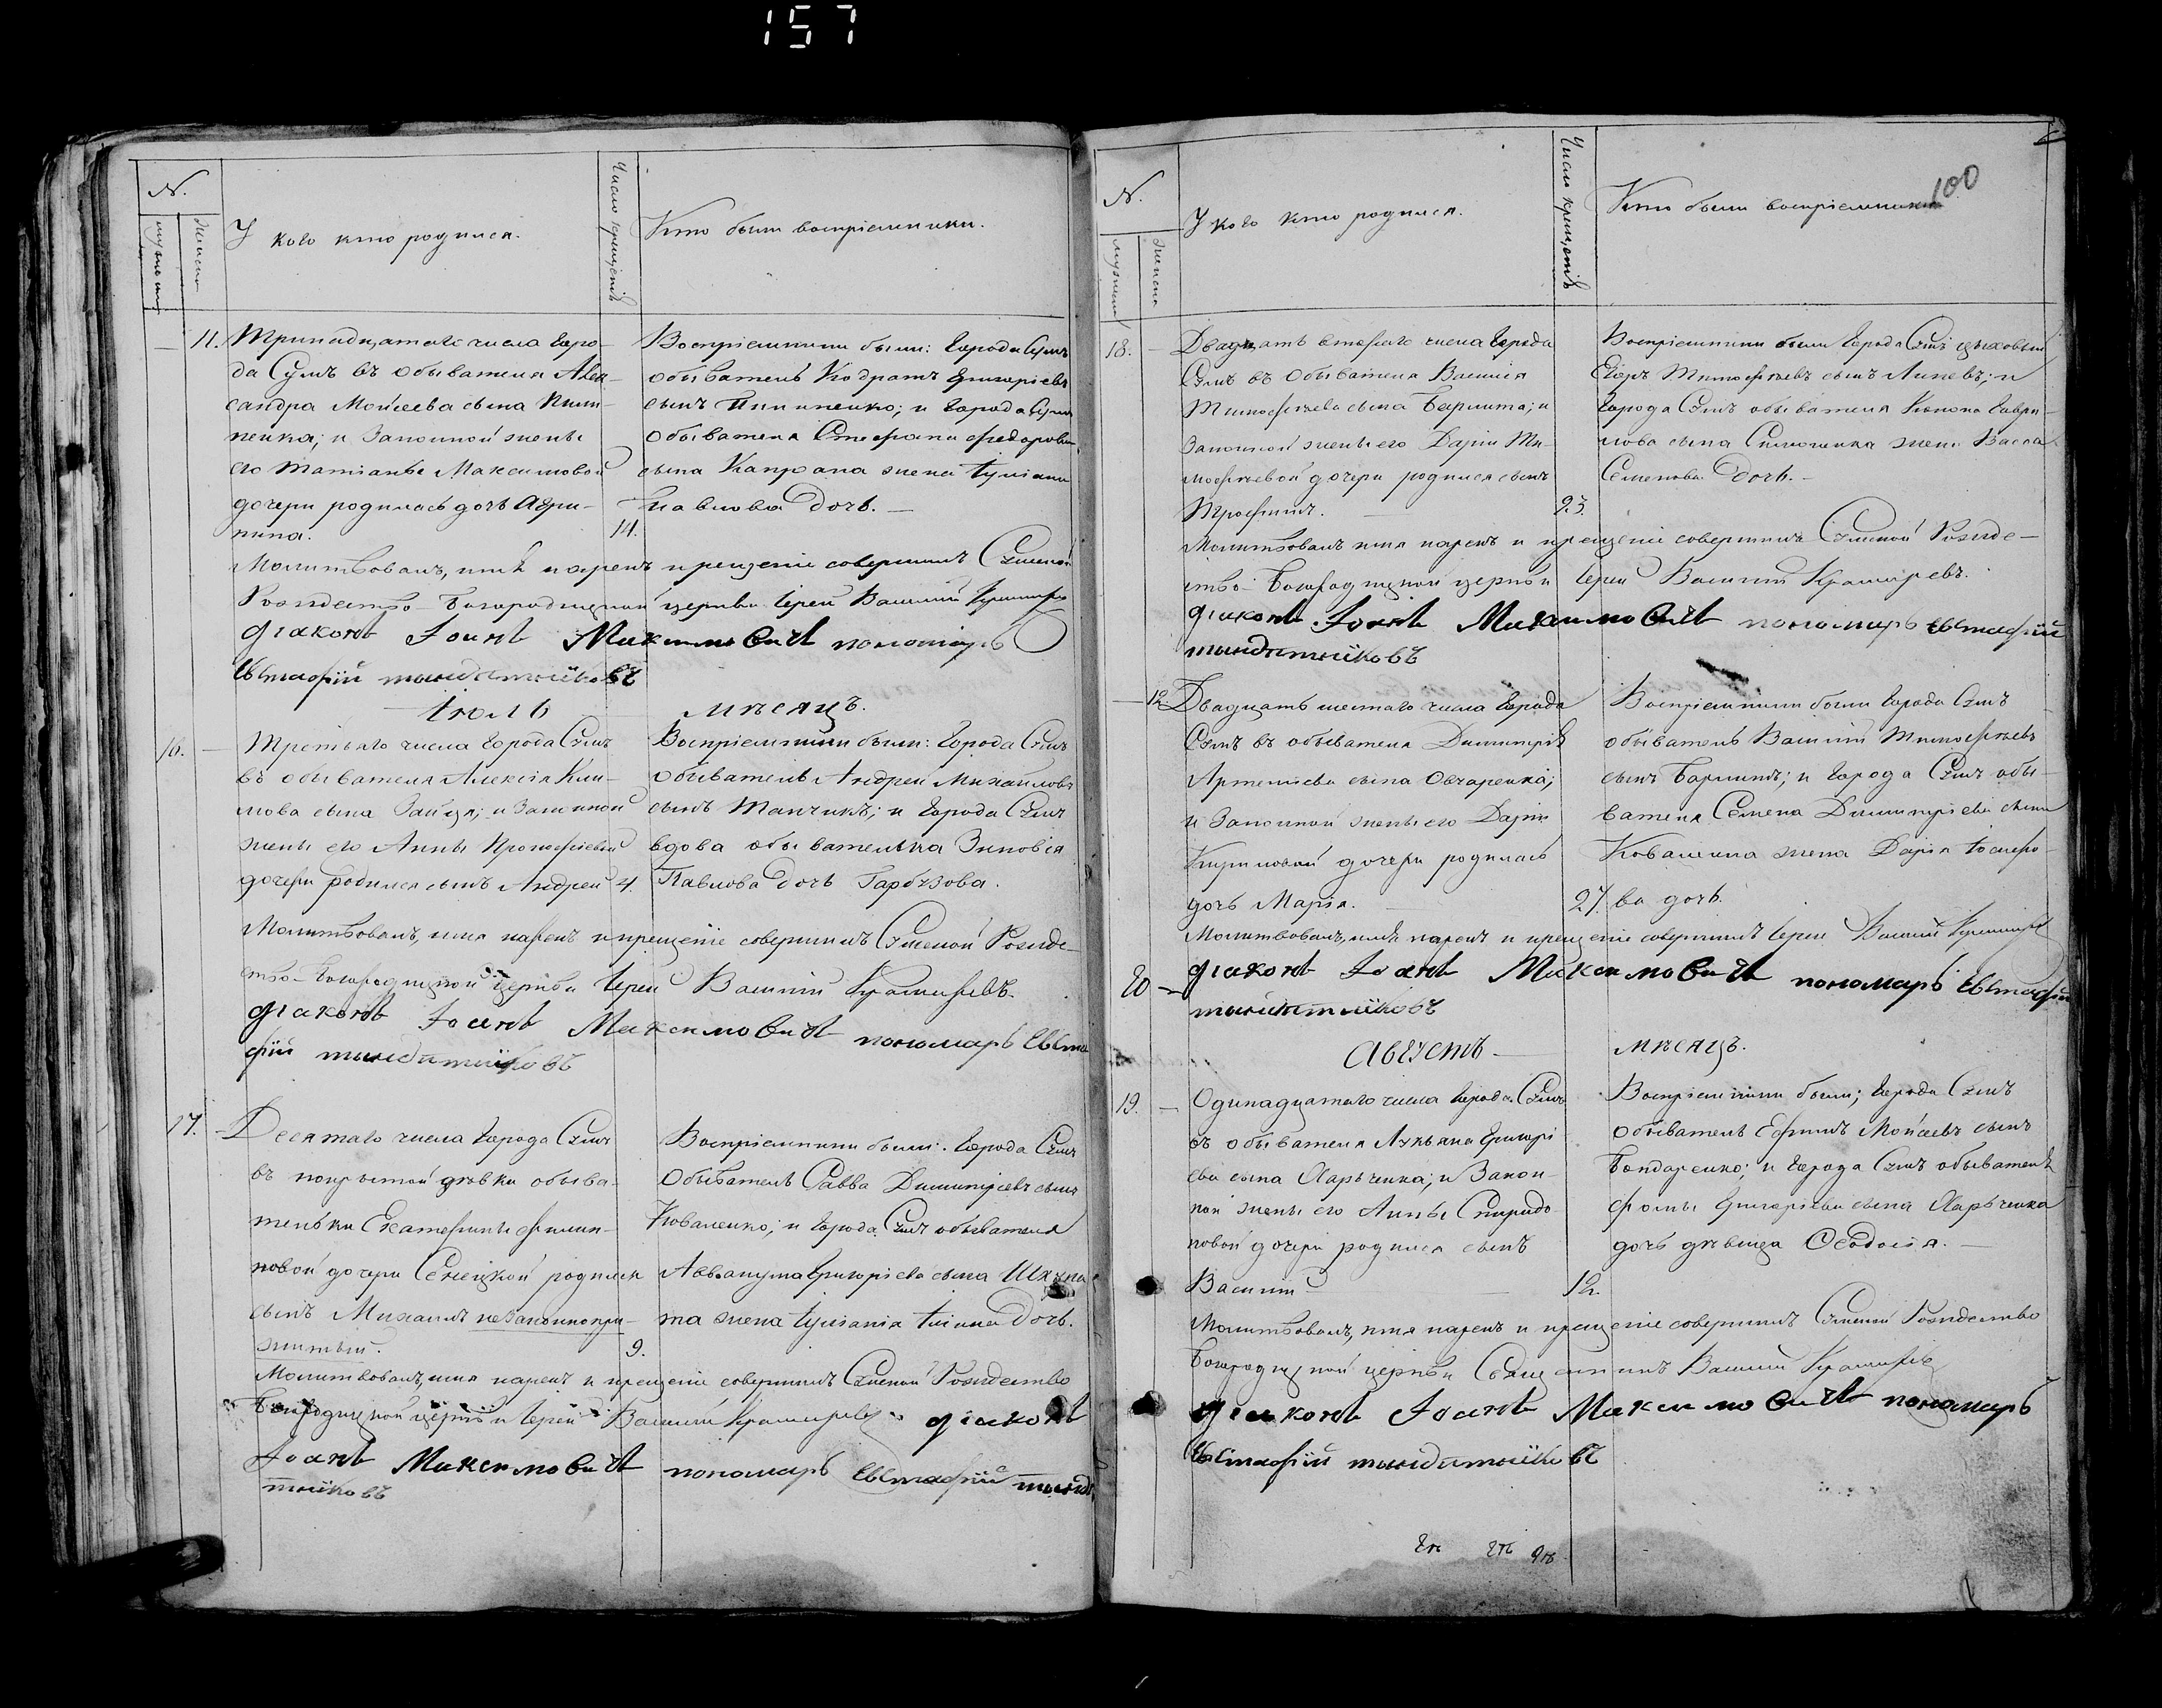 157
№.
мужеск
женска
У кого кто родился.
Число крещенія
Кто были воспріемники.
11. Тринадцатаго числа горо-
да Сумъ въ обывателя Алек-
сандра Моисеева сына Пили-
пенка; и законной жены
его Татіаны Максимовой
дочери родилась дочь Агри-
пина.
14.
Воспріемники были: города Сумъ
обыватель Кодратъ Григоріевъ
сынъ Пилипенко; и города Сумъ
обывателя Стефана Федорова
сына жена Іуліанія
Павлова дочь.
Молитвовалъ, имя нарекъ и крещеніе совершилъ Сумской
Рождество-Богородицкой церкви Іерей Василій
діаконъ Іоанъ Максимовичъ пономарь
Евстафій
Іюль мѣсяцъ.
16. Третьяго числа города Сумъ
въ обывателя Алексія Кли-
мова сына Зайця; и законной
жены его Анны Прокофіевой
дочери родился сынъ Андрей
4.
Воспріемники были: города Сумъ
обыватель Андрей Михайловъ
сынъ Танчикъ; и города Сумъ
вдова обывателька Зиновія
Павлова дочь Гарбузова.
Молитвовалъ, имя нарекъ и крещеніе совершилъ Сумской Рожде-
ство-Богородицкой церкви Іерей Василій Крамаревъ.
діаконъ Іоанъ Максимовичъ пономарь Евста
фій
17. Десятаго числа города Сумъ
въ покрытой дѣвки обыва-
тельки Екатерины Филип-
повой дочери родился
сынъ Михаилъ незаконнопри-
житый.
9.
Воспріемники были: города Сумъ
обыватель Савва Димитріевъ сынъ
Коваленко; и города Сумъ обывателя
Аввакума Григоріева сына
та жена Іуліанія дочь.
Молитвовалъ, имя нарекъ и крещеніе совершилъ Сумской Рождество
Богородицкой церкви Іерей Василій Крамаревъ діаконъ
Іоанъ Максимовичъ пономарь Евстафій
100
№.
мужеск
женска
У кого кто родился.
Число крещенія
Кто были воспріемники
18. Двадцать втораго числа города
Сумъ въ обывателя Василія
Тимофѣева сына Бармита; и
законной жены его Даріи Ти-
мофѣевой дочери родился сынъ
Трофимъ.
23.
Воспріемники были города Сумъ цеховый
Егоръ Тимофѣевъ сынъ Линевъ; и
города Сумъ обывателя Конона Гаври-
лова сына жена Васса
Семенова дочь.
Молитвовалъ имя нарекъ и крещеніе совершилъ Сумской Рожде-
ство-Богородицкой церкви Іерей Василій Крамаревъ.
діаконъ Іоанъ Максимовичъ пономарь Евстафій
12. Двадцать шестаго числа города
Сумъ въ обывателя Димитрія
Артеміева сына Овчаренка;
и законной жены его Даріи
Кириловой дочери родилась
дочь Марія.
27.
Воспріемники были города Сумъ
обыватель Василій Тимофѣевъ
сынъ Бармитъ; и города Сумъ обы-
вателя Семена Димитріева сына
Коваленка жена Дарія
ва дочь.
Молитвовалъ, имя нарекъ и крещеніе совершилъ Іерей Василій Крамаревъ
20 діаконъ Іоанъ Максимовичъ пономарь Евстафій
Августъ мѣсяцъ.
19. Одинадцатаго числа города Сумъ
въ обывателя Лукьяна Григорі-
ева сына Харьченка; и закон-
ной жены его Анны Спиридо-
новой дочери родился сынъ
Василій
12.
Воспріемники были; города Сумъ
обыватель Ефимъ Моисеевъ сынъ
Бондаренко; и города Сумъ обывателя
Фомы Григоріева сына Харьченка
дочь дѣвица Ѳеодосія.
Молитвовалъ, имя нарекъ и крещеніе совершилъ Сумской Рождество
Богородицкой церкви Священникъ Василій Крамаревъ
діаконъ Іоанъ Максимовичъ пономарь
Евстафій